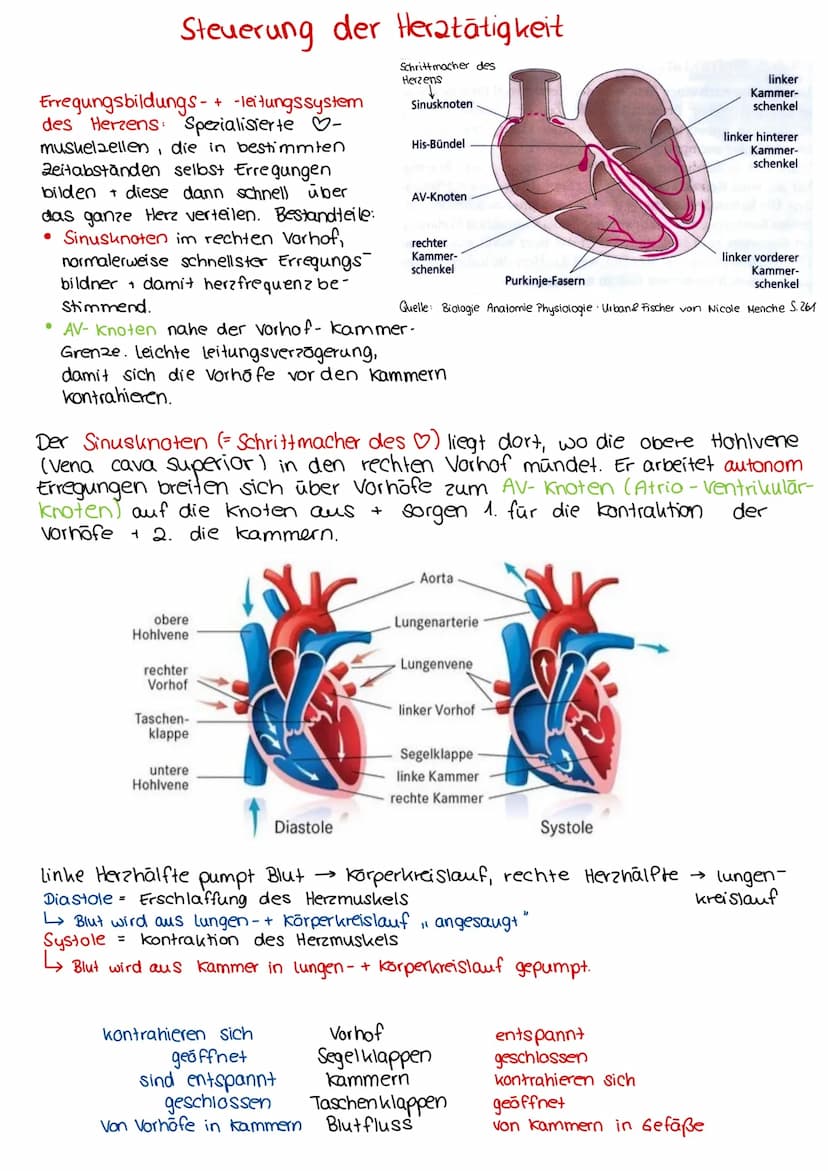 Steuerung der Herztätigkeit
Erregungsbildungs- + -leitungssystem
des Herzens: Spezialisierte ♡-
muskelzellen, die in bestimmten
Zeitabständen selbst Erregungen
bilden + diese dann schnell über
das ganze Herz verteilen. Bestandteile:
• Sinusknoten im rechten Vorhof,
normalerweise schnellster Erregungs-
bildner + damit herzfrequenzbe-
stimmend.
• AV-Knoten nahe der Vorhof-Kammer-
Grenze. leichte leitungsverzögerung,
damit sich die Vorhöfe vor den Kammern
kontrahieren.
Schrittmacher des
Herzens
↓
Sinusknoten
His-Bündel
AV-Knoten
rechter
Kammer-
schenkel
Purkinje-Fasern
linker
Kammer-
schenkel
linker hinterer
Kammer-
schenkel
linker vorderer
Kammer-
schenkel
Quelle: Biologie Anatomie Physiologie · Urban & Fischer von Nicole Menche S. 261
Der Sinusknoten (= Schrittmacher des ♡) liegt dort, wo die obere Hohlvene
(Vena cava superior) in den rechten Vorhof mündet. Er arbeitet autonom
Erregungen breiten sich über Vorhöfe zum AV-Knoten (Atrio-Ventrikulär-
knoten) auf die Knoten aus + sorgen 1. für die Kontraktion der
Vorhöfe + 2. die Kammern.
obere
Hohlvene
rechter
Vorhof
Taschen-
klappe
untere
Hohlvene
Aorta
Lungenarterie
Lungenvene
linker Vorhof
Segelklappe
linke Kammer
rechte Kammer
Diastole
Systole
linke Herzhälfte pumpt Blut → Körperkreislauf, rechte Herzhälfte → lungen-
kreislauf
Diastole = Erschlaffung des Herzmuskels
↳ Blut wird aus lungen- + Körperkreislauf „angesaugt"
Systole = Kontraktion des Herzmuskels
↳ Blut wird aus Kammer in lungen- + Körperkreislauf gepumpt.
kontrahieren sich Vorhof entspannt
geöffnet Segelklappen geschlossen
sind entspannt Kammern kontrahieren sich
geschlossen Taschenklappen geöffnet
von Vorhöfe in Kammern Blutfluss von Kammern in Gefäße